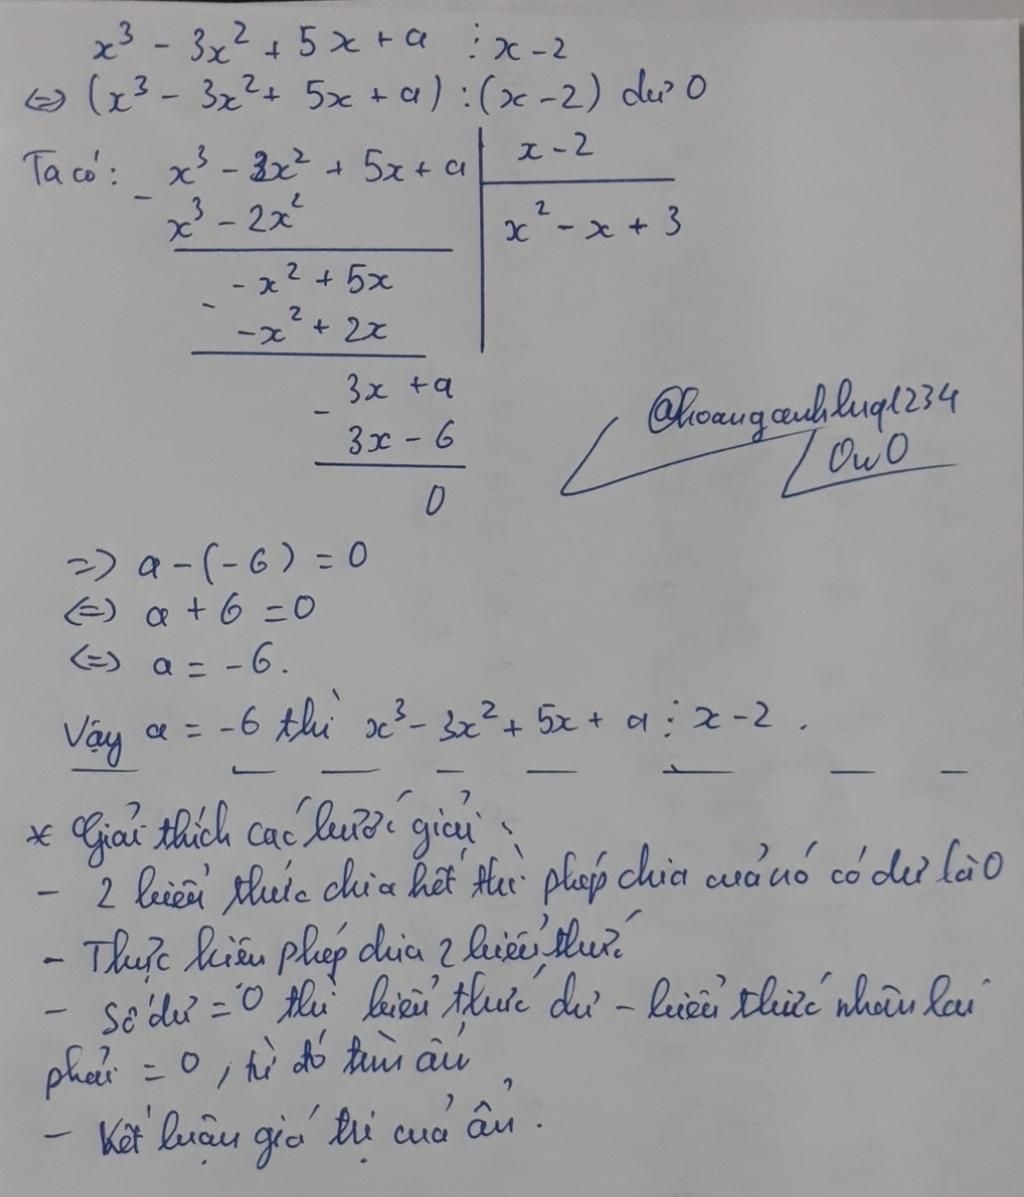 x³ - 3x² + 5x + a ⋮ x - 2
⇔ (x³ - 3x² + 5x + a) : (x - 2) dư 0
Ta có: x³ - 3x² + 5x + a | x - 2
- x³ - 2x² | x² - x + 3
-x² + 5x
- -x² + 2x
3x + a
- 3x - 6
0
@hoanganhluq1234
OwO
=> a - (-6) = 0
<=> a + 6 = 0
<=> a = -6.
Vậy a = -6 thì x³ - 3x² + 5x + a ⋮ x - 2.
* Giải thích các bước giải:
- 2 biểu thức chia hết thì phép chia của nó có dư là 0
- Thực hiện phép chia 2 biểu thức
- Số dư = 0 thì biểu thức dư - biểu thức nhân lại
phải = 0, từ đó tìm ẩn
- Kết luận giá trị của ẩn.